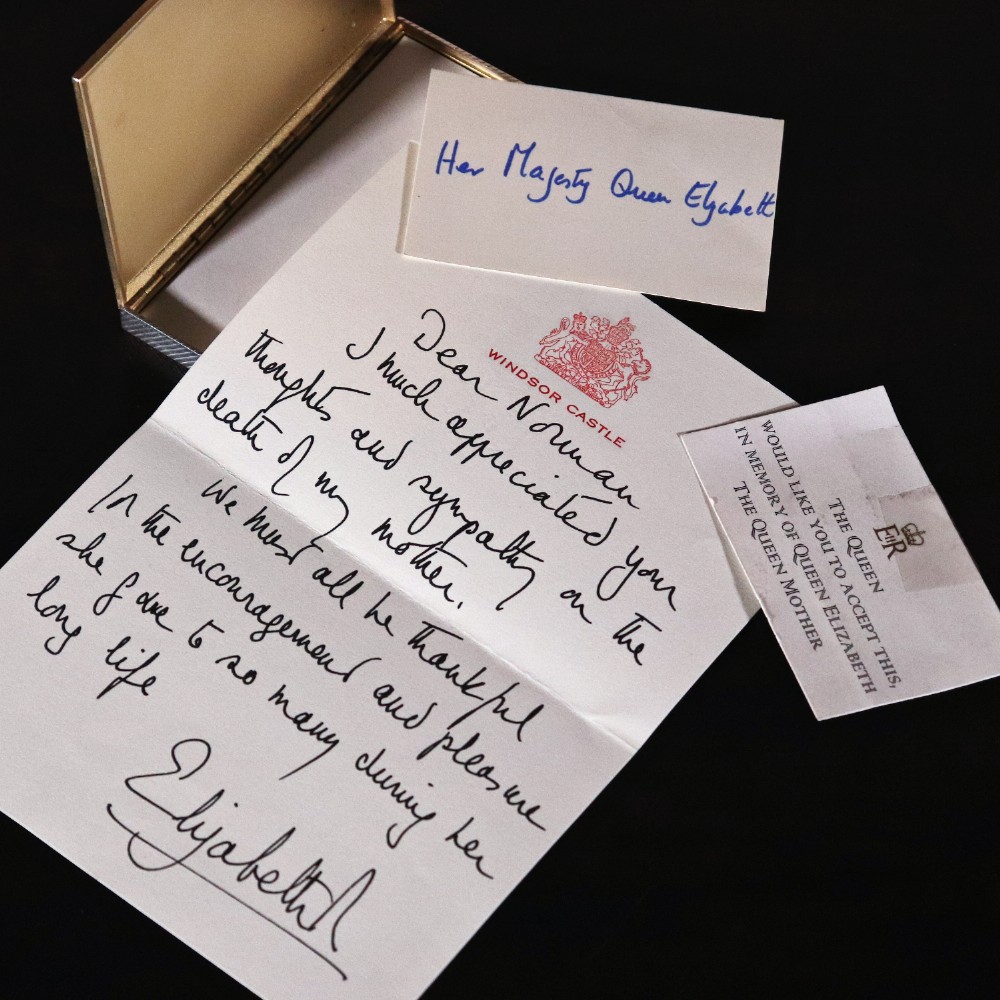 Her Majesty Queen Elizabeth
WINDSOR CASTLE
Dear Norman
I much appreciated your
thoughts and sympathy on the
death of my mother.
We must all be thankful
for the encouragement and pleasure
she gave to so many during her
long life
Elizabeth R
EIIR
THE QUEEN
WOULD LIKE YOU TO ACCEPT THIS,
IN MEMORY OF QUEEN ELIZABETH
THE QUEEN MOTHER